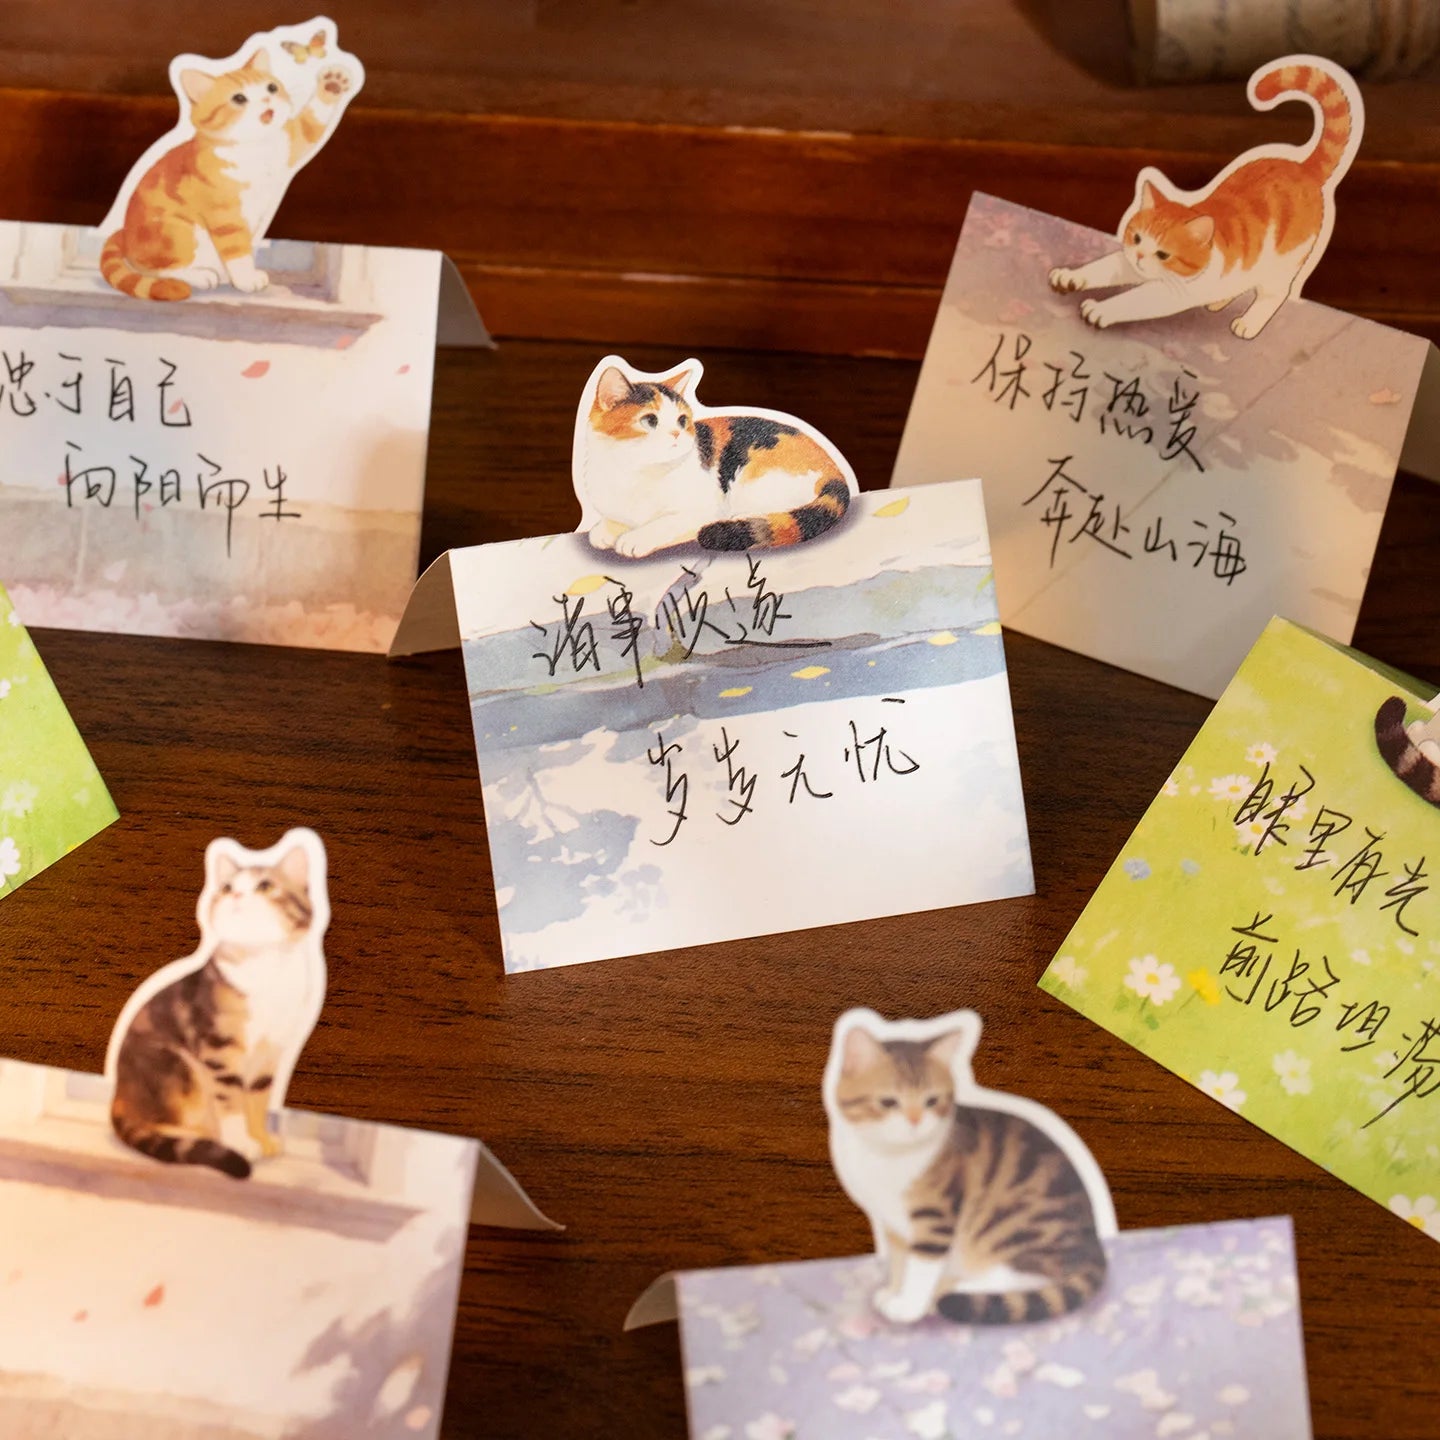 忠于自己
向阳而生
诸事顺遂
岁岁无忧
保持热爱
奔赴山海
眼里有光
前路坦荡